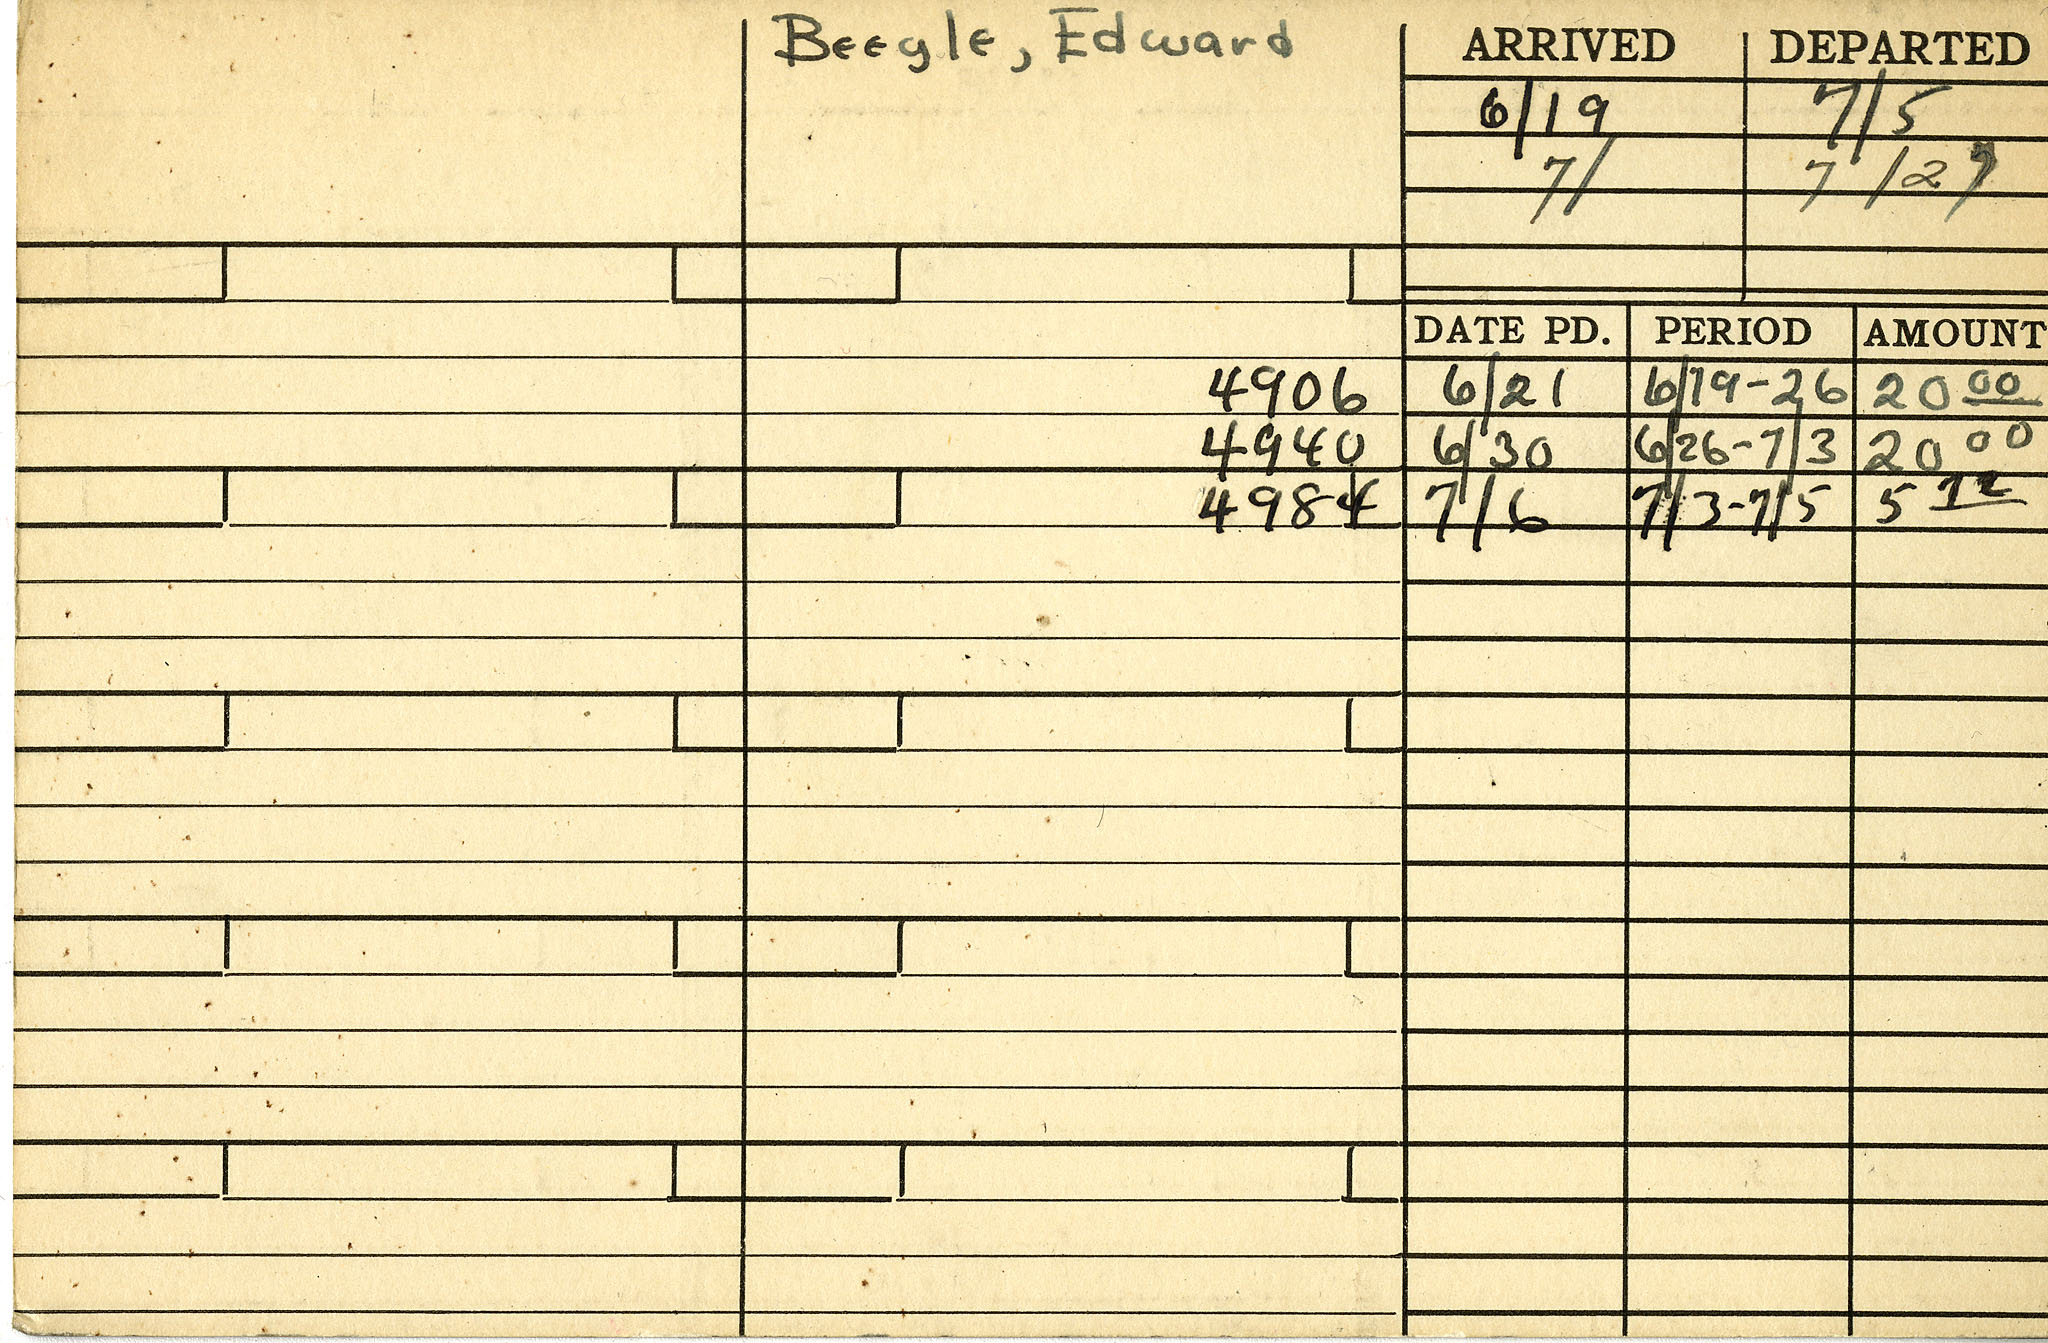 Beegle, Edward
ARRIVED DEPARTED
6/19 7/5
7/ 7/27
DATE PD. PERIOD AMOUNT
4906 6/21 6/19-26 20 00
4940 6/30 6/26-7/3 20 00
4984 7/6 7/3-7/5 5 72